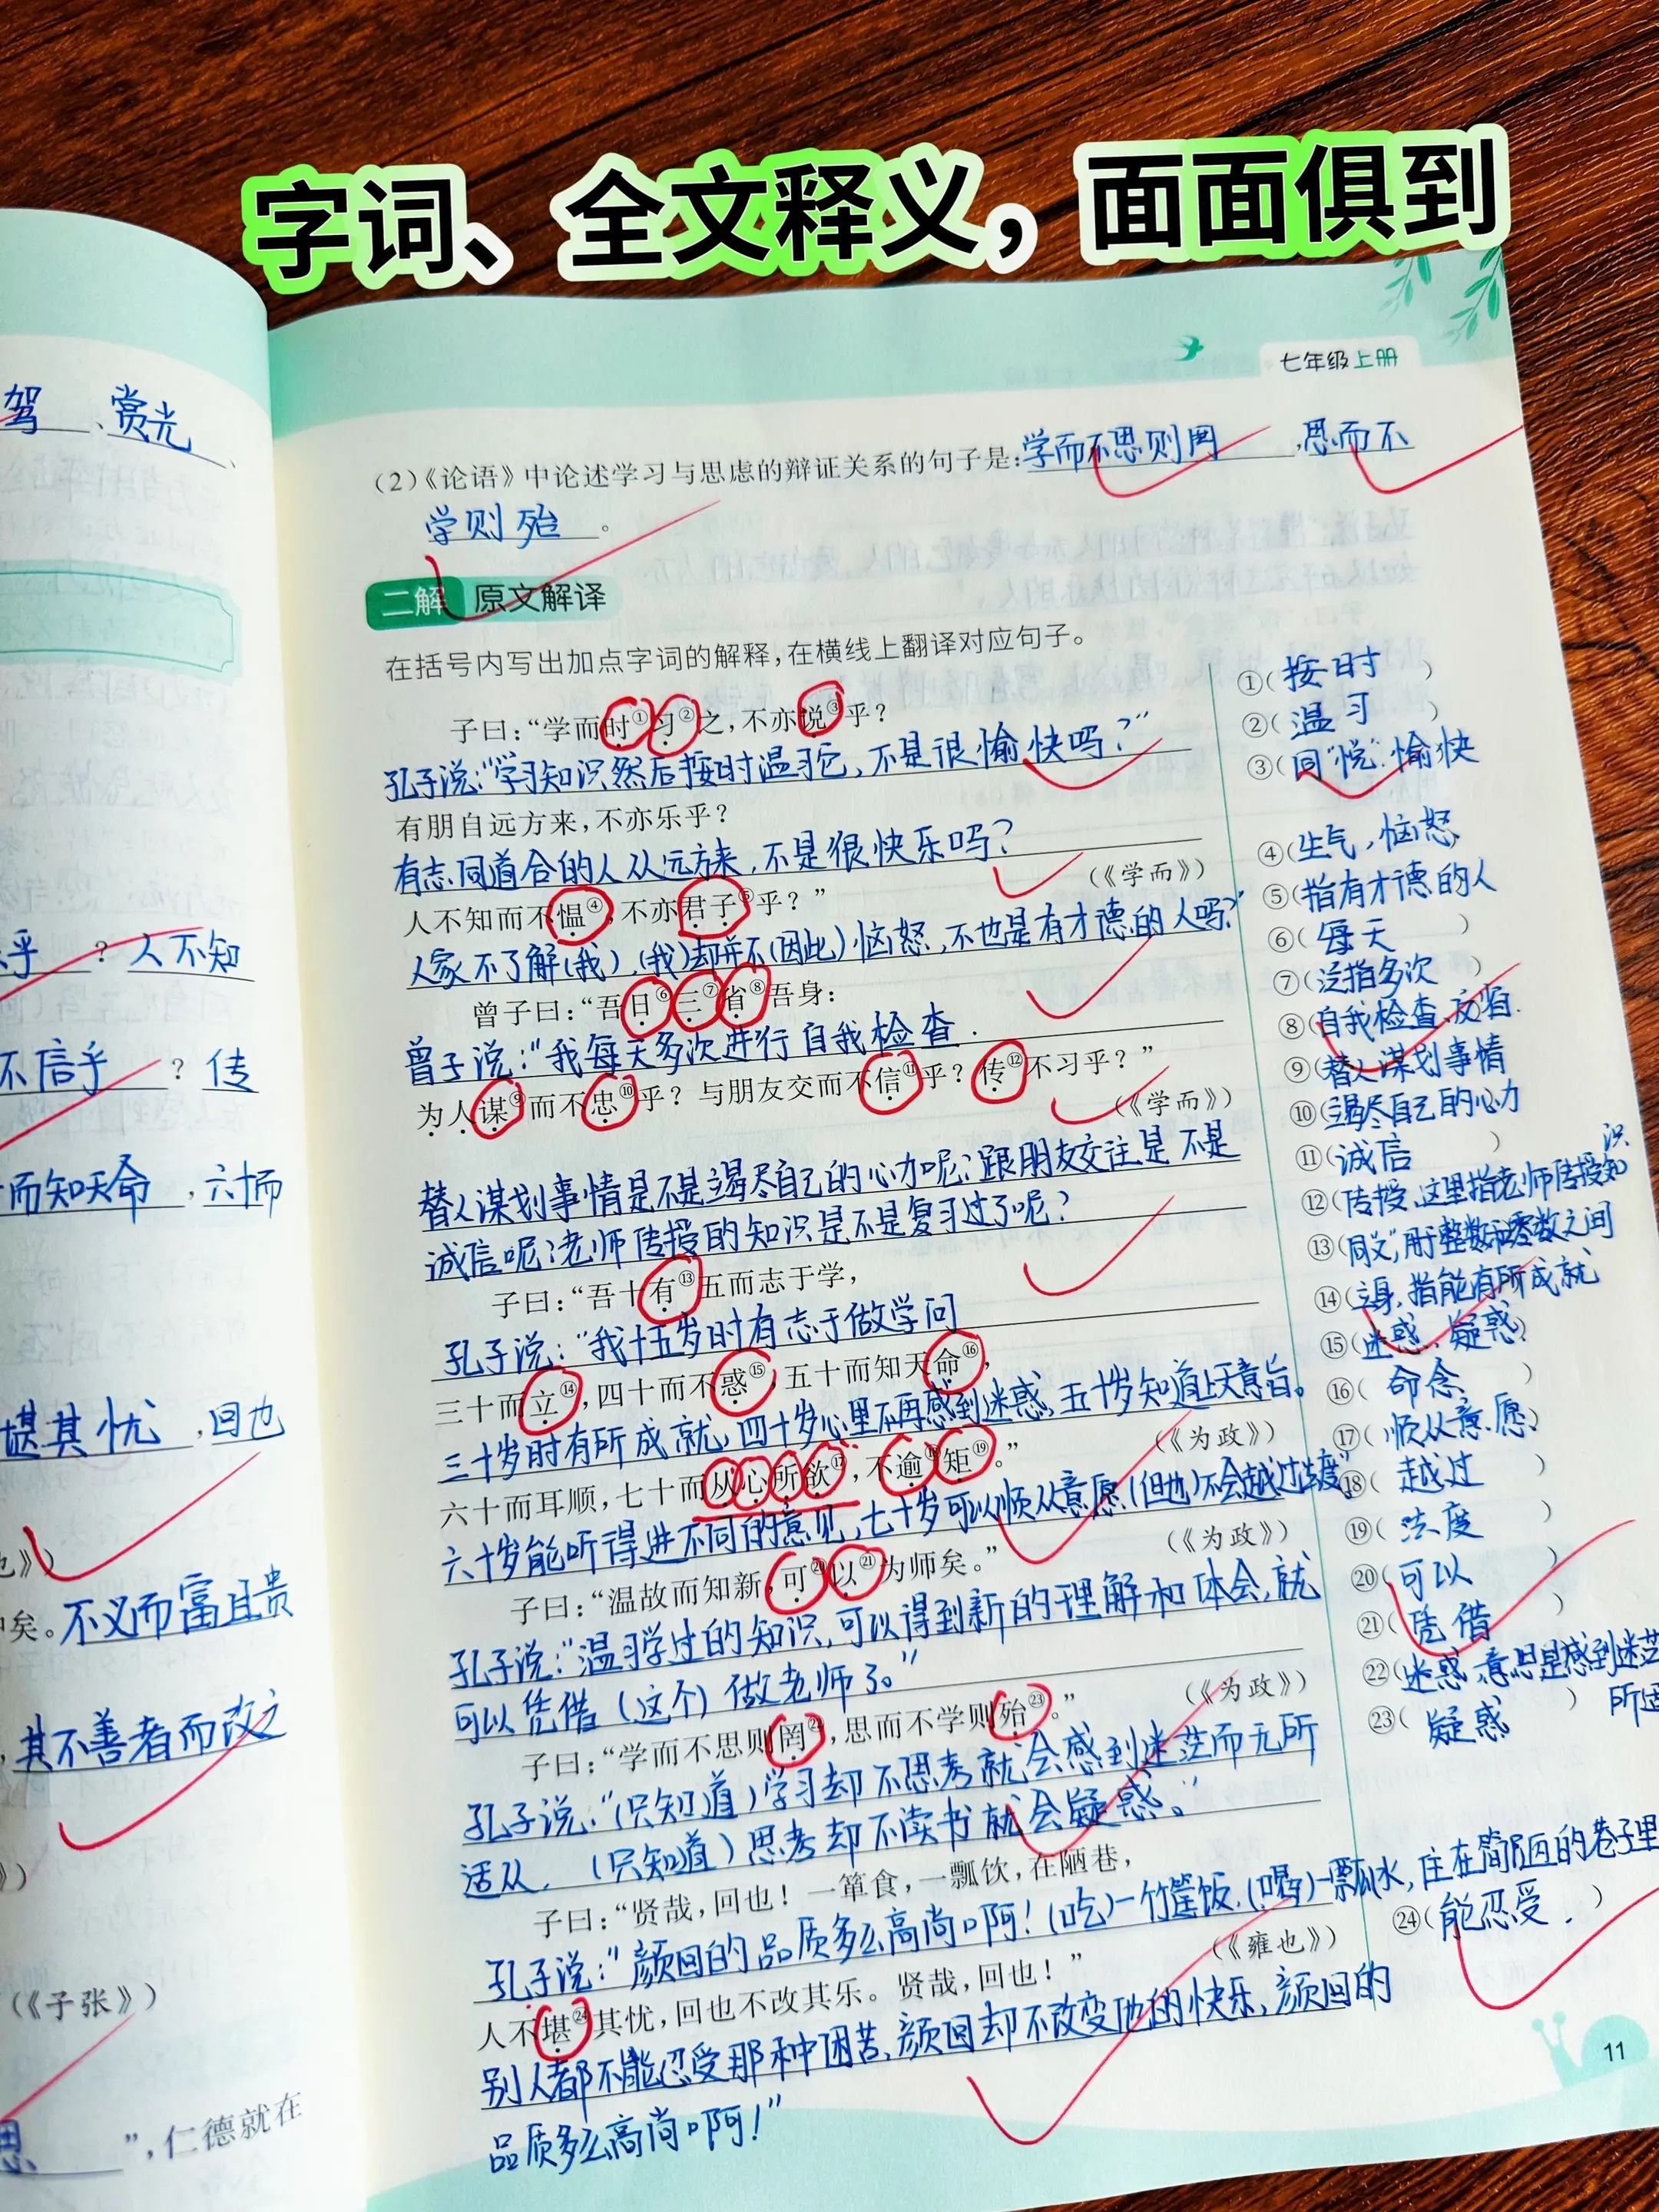 字词、全文释义，面面俱到
驾、赏光、
乎？人不知
不信乎？传
而知天命，六十而
堪其忧，回也
也》）
矣。不义而富且贵
，其不善者而改之
》）
（《子张》）
思”，仁德就在
七年级上册
（2）《论语》中论述学习与思虑的辩证关系的句子是：学而不思则罔，思而不
学则殆。
二解 原文解译
在括号内写出加点字词的解释，在横线上翻译对应句子。
子曰：“学而时①习②之，不亦说③乎？
孔子说：“学习知识然后按时温习它，不是很愉快吗？”
有朋自远方来，不亦乐乎？
有志同道合的人从远方来，不是很快乐吗？
（《学而》）
人不知而不愠④，不亦君子⑤乎？”
人家不了解（我），（我）却并不（因此）恼怒，不也是有才德的人吗？”
曾子曰：“吾日⑥三⑦省⑧吾身：
曾子说：“我每天多次进行自我检查．
为人谋⑨而不忠⑩乎？与朋友交而不信⑪乎？传⑫不习乎？”
（《学而》）
替人谋划事情是不是竭尽自己的心力呢？跟朋友交往是不是
诚信呢？老师传授的知识是不是复习过了呢？
子曰：“吾十有⑬五而志于学，
孔子说：“我十五岁时有志于做学问
三十而立⑭，四十而不惑⑮，五十而知天命⑯，
三十岁时有所成就，四十岁心里不再感到迷惑，五十岁知道上天意旨。
（《为政》）
六十而耳顺，七十而从心所欲⑰，不逾⑱矩⑲。”
六十岁能听得进不同的意见，七十岁可以顺从意愿（但也）不会越过法度”
（《为政》）
子曰：“温故而知新，可⑳以㉑为师矣。”
孔子说：“温习学过的知识，可以得到新的理解和体会，就
可以凭借（这个）做老师了。”
（《为政》）
子曰：“学而不思则罔㉒，思而不学则殆㉓。”
孔子说：“（只知道）学习却不思考就会感到迷茫而无所
适从，（只知道）思考却不读书就会疑惑。”
子曰：“贤哉，回也！一箪食，一瓢饮，在陋巷，
孔子说：“颜回的品质多么高尚啊！（吃）一竹筐饭，（喝）一瓢水，住在简陋的巷子里
（《雍也》）
人不堪㉔其忧，回也不改其乐。贤哉，回也！”
别人都不能忍受那种困苦，颜回却不改变他的快乐，颜回的
品质多么高尚啊！”
①（按时）
②（温习）
③（同“悦”，愉快
④（生气，恼怒
⑤（指有才德的人
⑥（每天）
⑦（泛指多次）
⑧（自我检查、反省．
⑨（替人谋划事情
⑩（竭尽自己的心力
⑪（诚信）
⑫（传授，这里指老师传授知识
⑬（同“又”，用于整数和零数之间
⑭（立身，指能有所成就
⑮（迷惑、疑惑）
⑯（命令）
⑰（顺从意愿）
⑱（越过）
⑲（法度）
⑳（可以）
㉑（凭借）
㉒（迷惑，意思是感到迷茫
㉓（疑惑）
㉔（能忍受．）
11